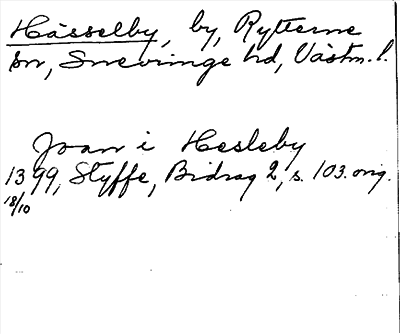 Hässelby, by, Rytterne
sn, Snevringe hd, Västm. l.
Joan i Hesleby
1399, Styffe, Bidrag 2, s. 103. orig.
18/10